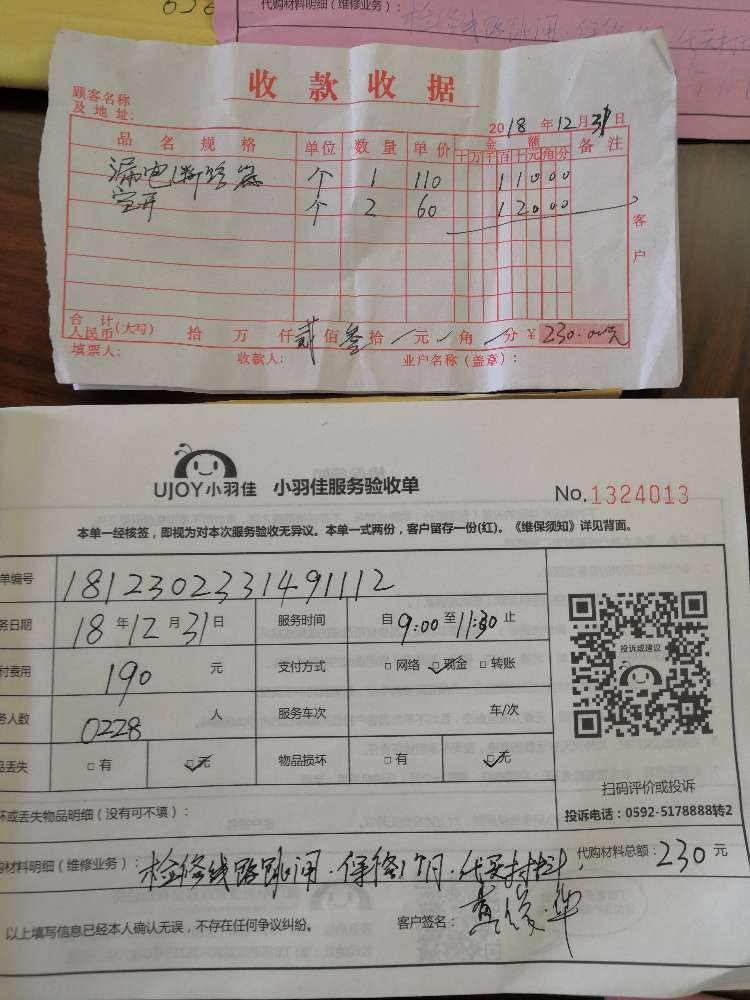 代购材料明细(维修业务):
检修线路跳闸.保修
收款收据
顾客名称
及地址:
2018年12月31日
品名规格 单位 数量 单价 金额 备注
十万千百十元角分
漏电断路器 个 1 110 11000
空开 个 2 60 12000
客户
合计
人民币(大写) 拾 万 仟 贰佰叁拾/元/角/分 ¥230.00元
填票人: 收款人: 业户名称(盖章):
UJOY小羽佳 小羽佳服务验收单 No.1324013
本单一经核签,即视为对本次服务验收无异议。本单一式两份,客户留存一份(红)。《维保须知》详见背面。
单编号 1812302331491112
务日期 18年12月31日 服务时间 自9:00至11:30止
付费用 190元 支付方式 □网络 ☑现金 □转账
务人数 0228人 服务车次 车/次
品丢失 □有 ☑无 物品损坏 □有 ☑无
投诉或建议
扫码评价或投诉
投诉电话:0592-5178888转2
坏或丢失物品明细(没有可不填):
购材料明细(维修业务):检修线路跳闸.保修1个月.代买材料, 代购材料总额:230元
以上填写信息已经本人确认无误,不存在任何争议纠纷。 客户签名: